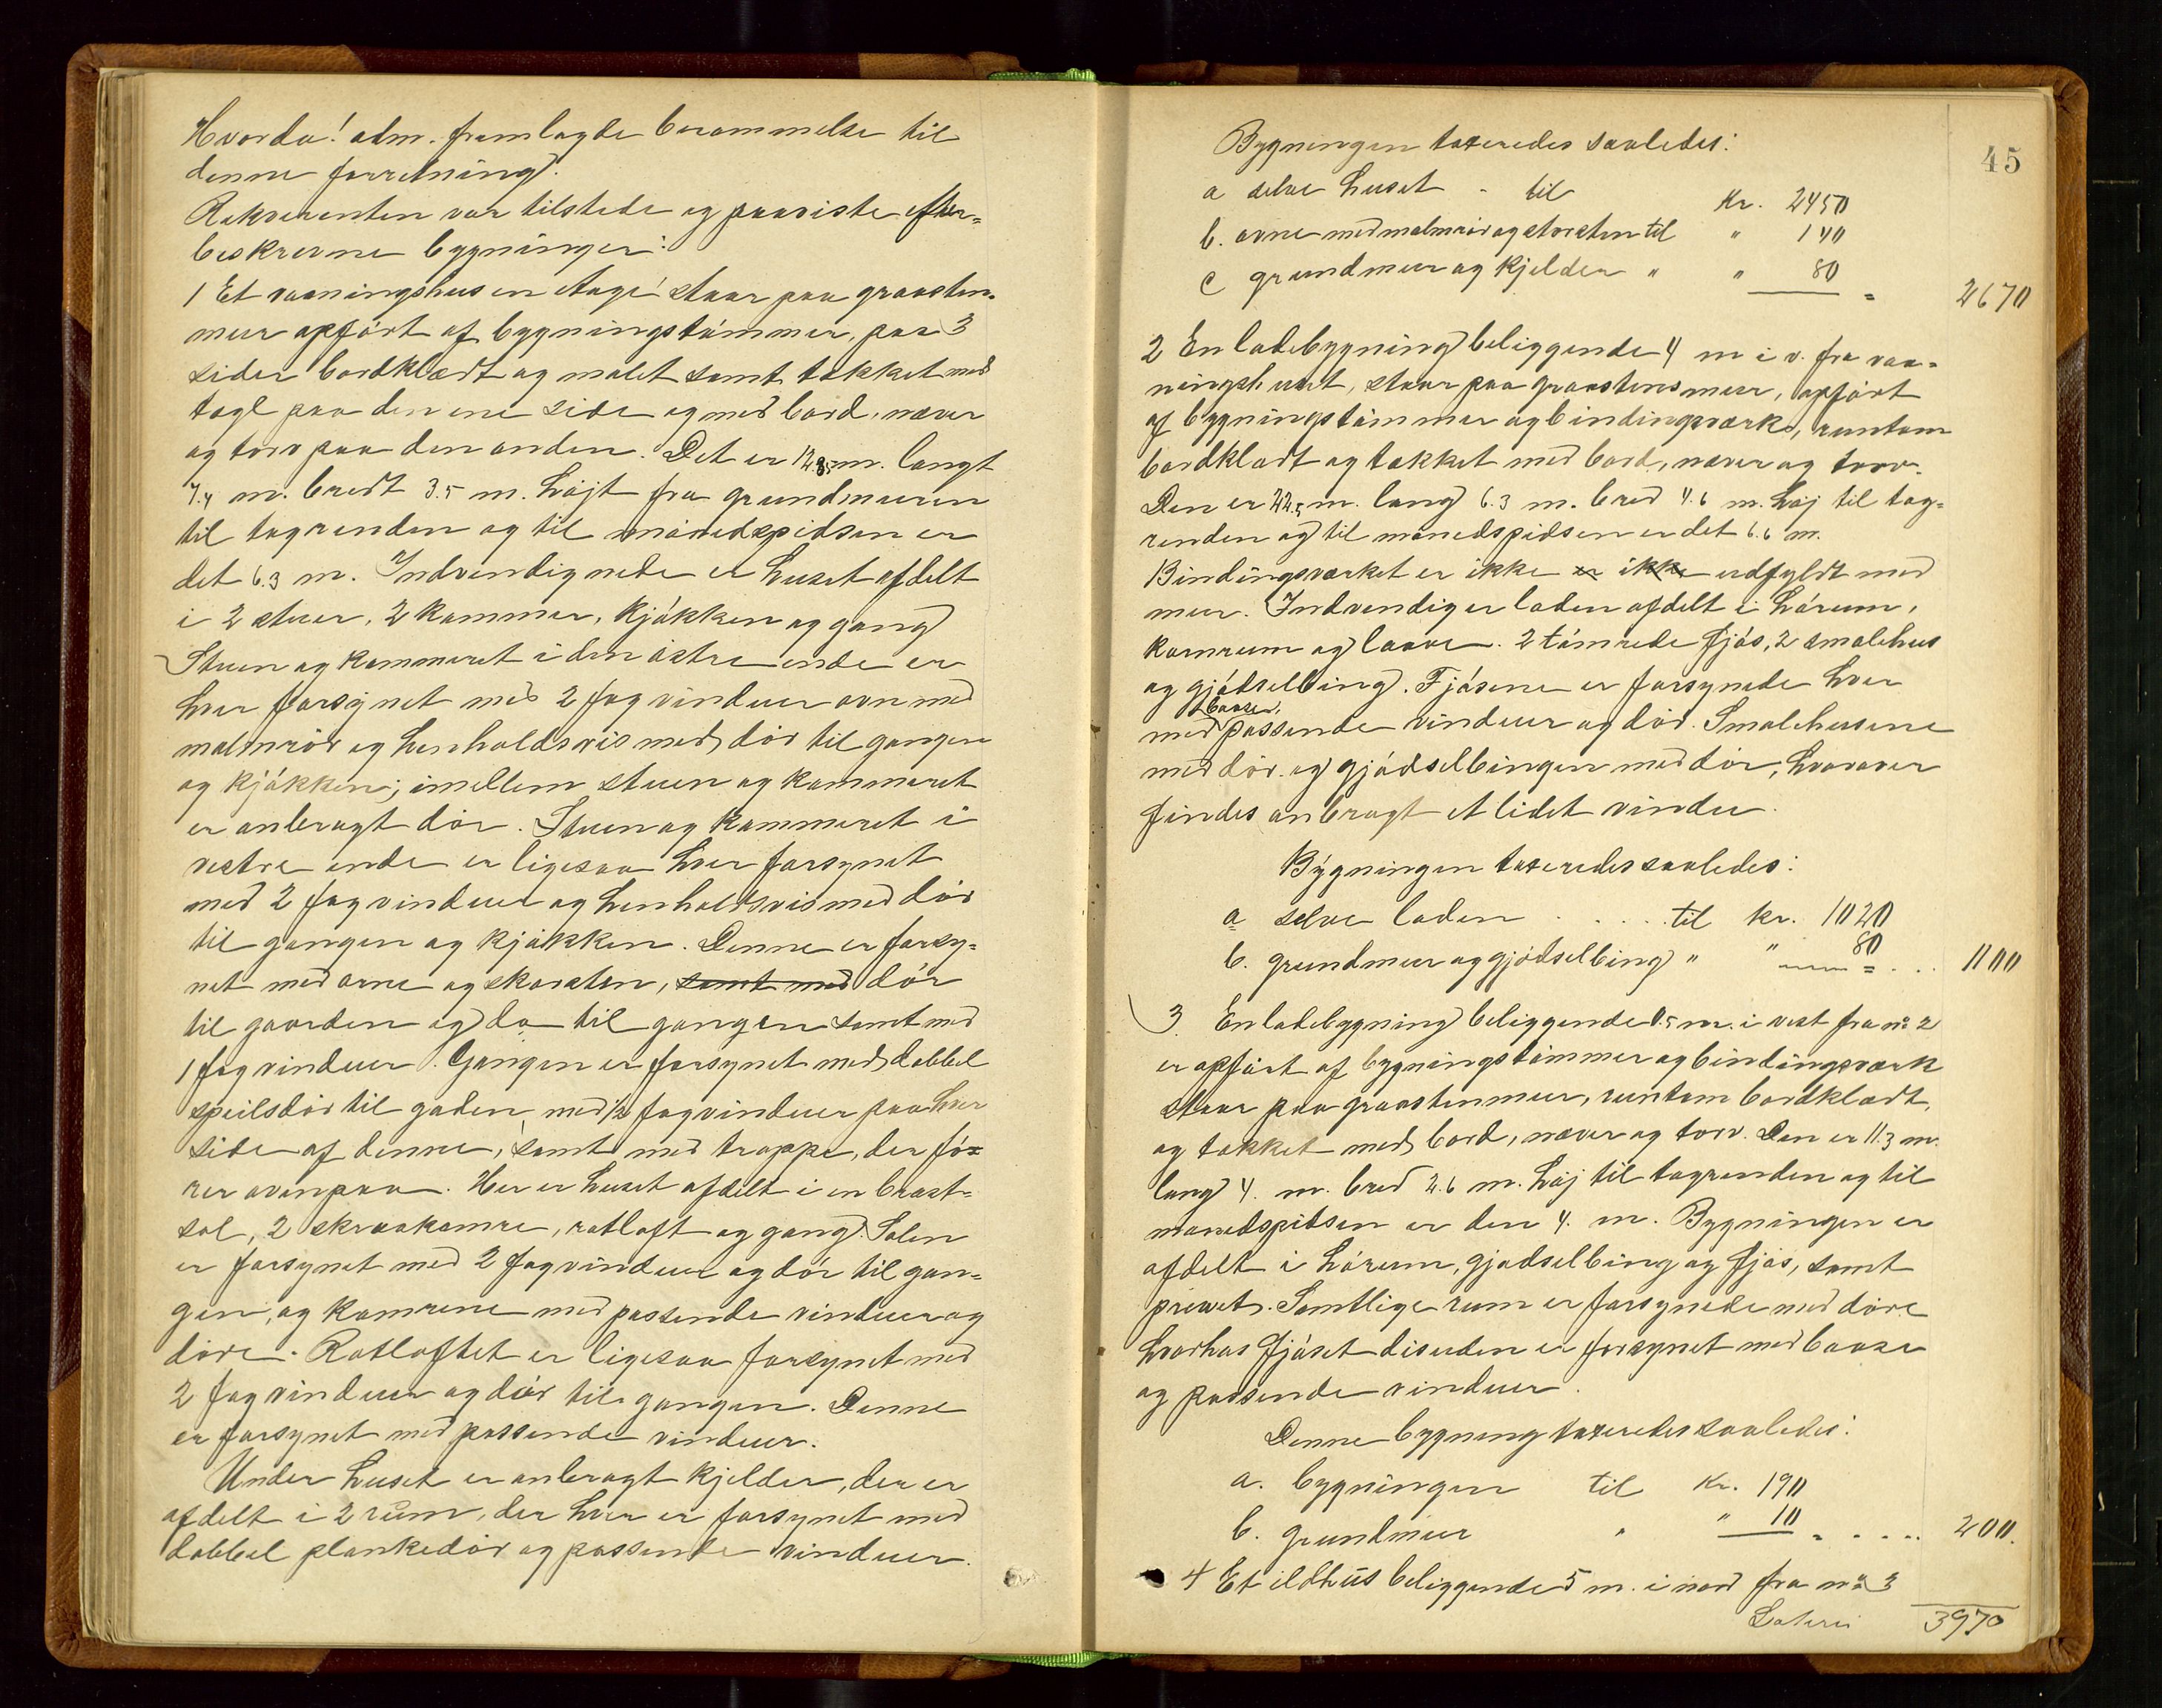 Hvorda! adm. fremlagde berammelse til
denne forretning.
Rekvirenten var tilstede og paaviste efter=
beskrevne bygninger:
1 Et vaaningshus en etage staar paa graasten-
mur opført af bygningstømmer, paa 3
sider bordklædt og malet samt tækket med
tagl paa den ene side og med bord, næver
og torv paa den anden. Det er 12.85 m. langt
7.4 m. bredt 3.5 m. højt fra grundmuren
til tagrenden og til mønedspidsen er
det 6.3 m. Indvendig nede er huset afdelt
i 2 stuer, 2 kammer, kjøkken og gang
Stuen og kammeret i den østre ende er
hver forsynet med 2 fag vinduer ovn med
malmrør og henholdsvis med dør til gangen
og kjøkken; imellem stuen og kammeret
er anbragt dør. Stuen og kammeret i
vestre ende er ligesaa hver forsynet
med 2 fag vinduer og henholdsvis med dør
til gangen og kjøkken. Denne er forsy=
net med arne og skorsten, samt med dør
til gaarden og do til gangen samt med
1 fag vinduer. Gangen er forsynet med dobbel
speilsdør til gaden med 1/2 fag vinduer paa hver
side af denne, samt med trappe, der fø=
rer ovenpaa. Her er huset afdelt i en brøst=
sal, 2 skraakamre, rotloft og gang. Salen
er forsynet med 2 fag vinduer og dør til gan=
gen, og kamrene med passende vinduer og
døre. Rotloftet er ligesaa forsynet med
2 fag vinduer og dør til gangen. Denne
er forsynet med passende vinduer.
Under huset er anbragt kjelder, der er
afdelt i 2 rum, der hver er forsynet med
dobbel plankedør og passende vinduer.
45
Bygningen taxeredes saaledes:
a selve huset - til Kr. 2450
b. ovne med malmrør og skorsten til " 140
c grundmur og kjelder " " 80 = 2670
2 En ladebygning beliggende 4 m i v. fra vaa=
ningshuset, staar paa graastensmur, opført
af bygningstømmer og bindingsværk, runtom
bordklædt og tækket med bord, næver og torv.
Den er 22.5 m. lang 6.3 m. bred 4.6 m. høj til tag=
renden og til mønedspidsen er det 6.6 m.
Bindingsværket er ikke er ikke udfyldt med
mur. Indvendig er laden afdelt i hørum,
kornrum og laave. 2 tømrede fjøs, 2 smalehus
og gjødselbing. Fjøsene er forsynede hver
baase,
med passende vinduer og dør. Smalehusene
med dør og gjødselbingen med dør, hvorover
findes anbragt et lidet vindu.
Bygningen taxeredes saaledes:
a selve laden . . . . til kr. 1020
b. grundmur og gjødselbing " " 80 = . . . 1100
3. En ladebygning beliggende 0.5 m. i vest fra no 2
er opført af bygningstømmer og bindingsværk
staar paa graastenmur, runtom bordklædt,
og tækket med bord, næver og torv. Den er 11.3 m.
lang 4. m. bred 2.6 m. høj til tagrenden og til
mønedspidsen er den 4. m. Bygningen er
afdelt i hørum, gjødselbing og fjøs, samt
privet. Samtlige rum er forsynede med døre
hvorhos fjøset desuden er forsynet med baase
og passende vinduer.
Denne bygning taxeredes saaledes:
a. bygningen til Kr. 190
b. grundmur " " 10 = . . . . 200.
4 Et ildhus beliggende 5 m. i nord fra no 3
Lateris 3970